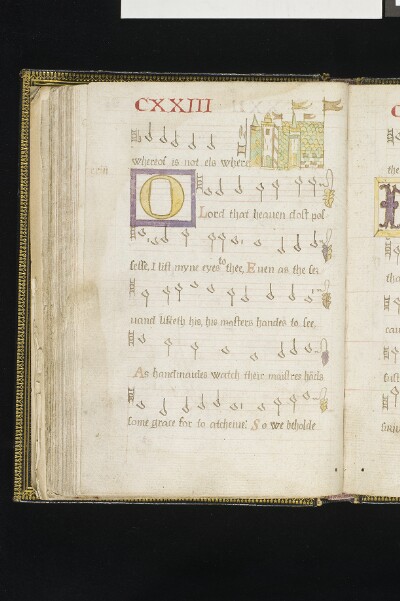 CXXIII
whereof is not els where
O
Lord that heaven dost pos
sesse, I lift myne eyes to thee, Even as the ser
uand lifteth his, his masters handes to see.
As handmaides watch their maistres hāds
some grace for to atcheue: So we beholde
C
the